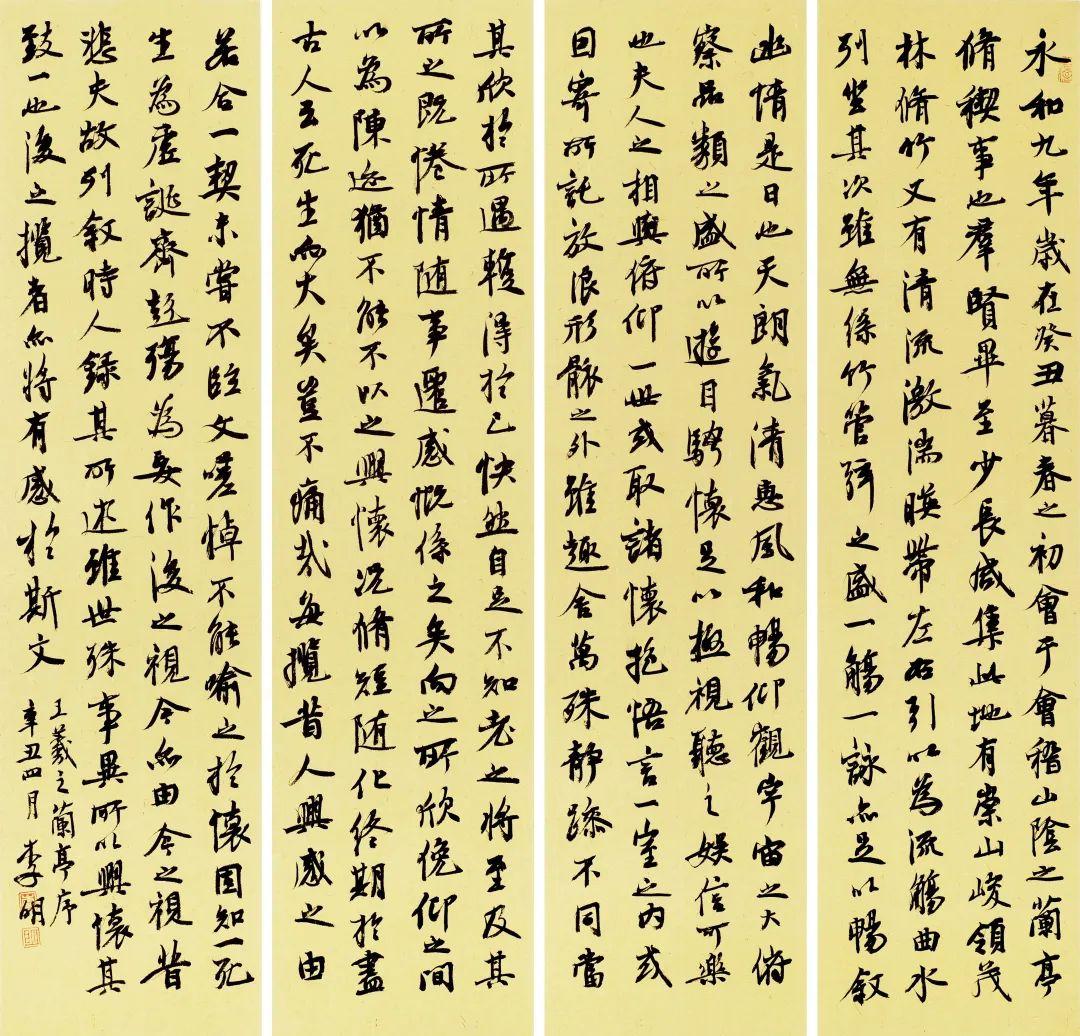 永和九年歲在癸丑暮春之初會于會稽山陰之蘭亭
脩稧事也羣賢畢至少長咸集此地有崇山峻領茂
林脩竹又有清流激湍暎帶左右引以為流觴曲水
列坐其次雖無絲竹管弦之盛一觴一詠亦足以暢敘
幽情是日也天朗氣清惠風和暢仰觀宇宙之大俯
察品類之盛所以遊目騁懷足以極視聽之娛信可樂
也夫人之相與俯仰一世或取諸懷抱悟言一室之內或
因寄所託放浪形骸之外雖趣舍萬殊静躁不同當
其欣於所遇暫得於己快然自足不知老之將至及其
所之既惓情随事遷感慨係之矣向之所欣俛仰之間
以為陳迹猶不能不以之興懷況脩短随化終期於盡
古人云死生亦大矣豈不痛哉每攬昔人興感之由
若合一契未嘗不臨文嗟悼不能喻之於懷固知一死
生為虛誕齊彭殤為妄作後之視今亦由今之視昔
悲夫故列敘時人錄其所述雖世殊事異所以興懷其
致一也後之攬者亦將有感於斯文
王羲之蘭亭序
辛丑四月 李明